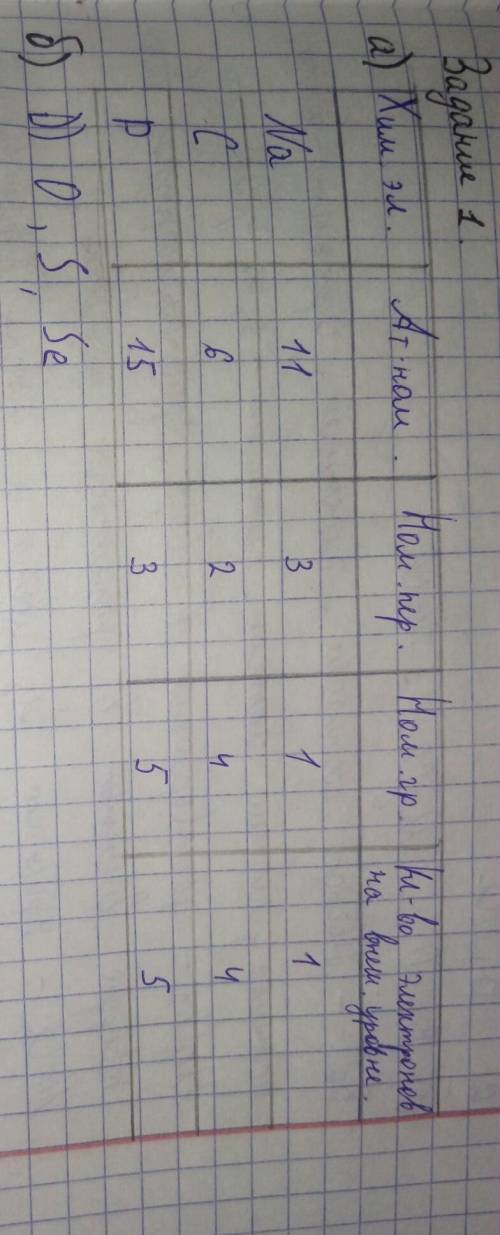 Задание 1.
а) Хим эл. Ат. ном. Ном. пер. Ном. гр. Кл-во электронов
на внеш. уровне.
Na 11 3 1 1
C 6 2 4 4
P 15 3 5 5
б) D) O, S, Se